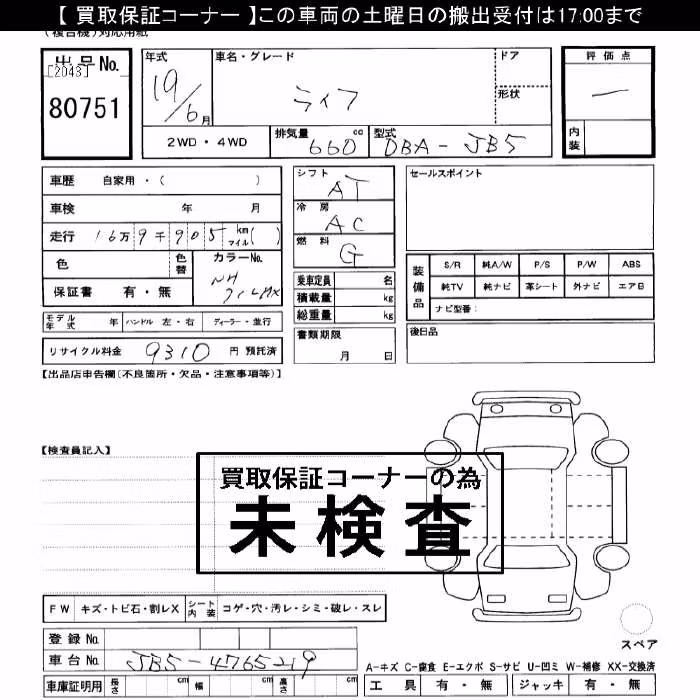 【 買取保証コーナー 】この車両の土曜日の搬出受付は17:00まで
(複合機)対応用紙
出品No.
[2043]
80751
年式
19/6月
車名・グレード
ライフ
ドア
形状
評価点
―
内装
2WD・4WD
排気量 660 cc
型式 DBA-JB5
車歴 自家用・( )
車検 年 月
走行 16万9千905 km マイル( )
色
色替
カラーNo.
NH
保証書 有・無
モデル年式 年 ハンドル 左・右 ディーラー・並行
リサイクル料金 9310 円 預託済
シフト AT
冷房 AC
燃料 G
乗車定員 名
積載量 kg
総重量 kg
書類期限
月 日
セールスポイント
装備品
S/R 純A/W P/S P/W ABS
純TV 純ナビ 革シート 外ナビ エアB
ナビ型番:
後日品
【出品店申告欄(不良箇所・欠品・注意事項等)】
【検査員記入】
買取保証コーナーの為
未検査
FW キズ・トビ石・割レX シート内装 コゲ・穴・汚レ・シミ・破レ・スレ
登録No.
車台No. JB5-4765219
車庫証明用 長さ cm 幅 cm 高さ cm
スペア
A-キズ C-腐食 E-エクボ S-サビ U-凹ミ W-補修 XX-交換済
工具 有・無 ジャッキ 有・無